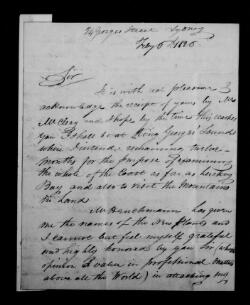 Georges Street Sydney
Feby 6th 1836
Sir
It is with not pleasure I
acknowledge the receipt of yours by Mr
McCleay and I hope by the time this reaches
you I shall be at King Georges Sound
where I intend remaining twelve
months for the purpose of examining
the whole of the Coast as far as
Bay and also to visit the Mountains
in Land
Mr has given
me the names of the New Plants and
I cannot but feel myself grateful
and highly honored by you Sir (whose
opinion I value in professional matters
above all the World) in attaching my